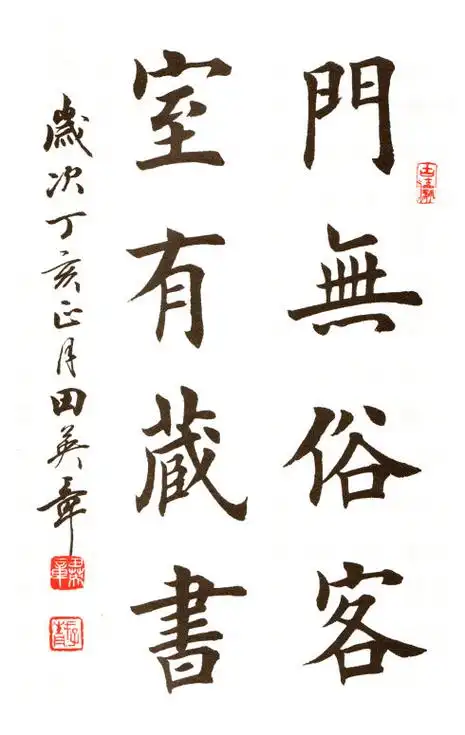 門無俗客
室有蔵書
歲次丁亥正月田英章